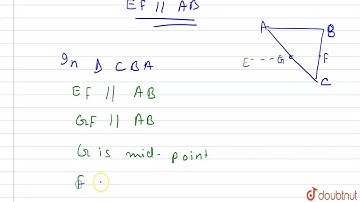 EF || AB
A
B
E
G
F
C
In Δ CBA
EF || AB
GF || AB
G is mid-point
doubtnut